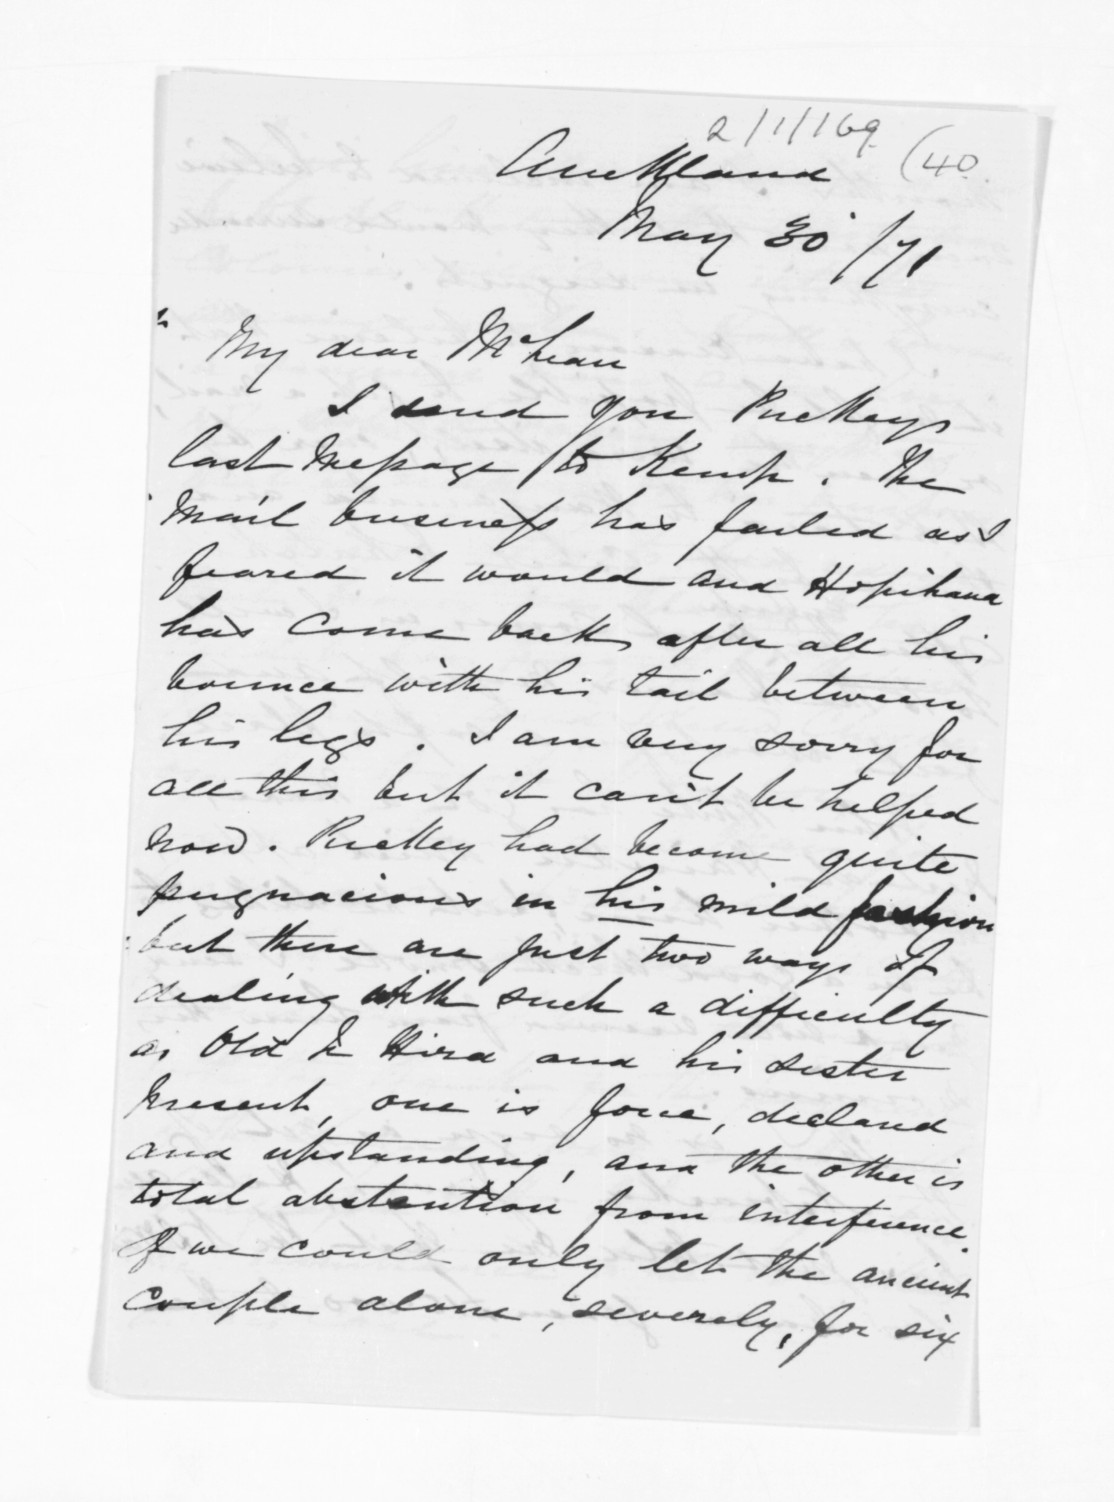 2/1/169 (40.
Auckland
May 30 /71
My dear McLean
I send you Puckeys
last Message to Kemp. The
Mail business has failed as I
feared it would and Hopihana
has come back after all his
bounce with his tail between
his legs. I am very sorry for
all this but it can't be helped
now. Puckey had become quite
pugnacious in his mild fashion
but there are just two ways of
dealing with such a difficulty
as Old Te Hira and his sister
present, one is force, declared
and upstanding, and the other is
total abstention from interference.
If we could only let the ancient
couple alone, severely, for six